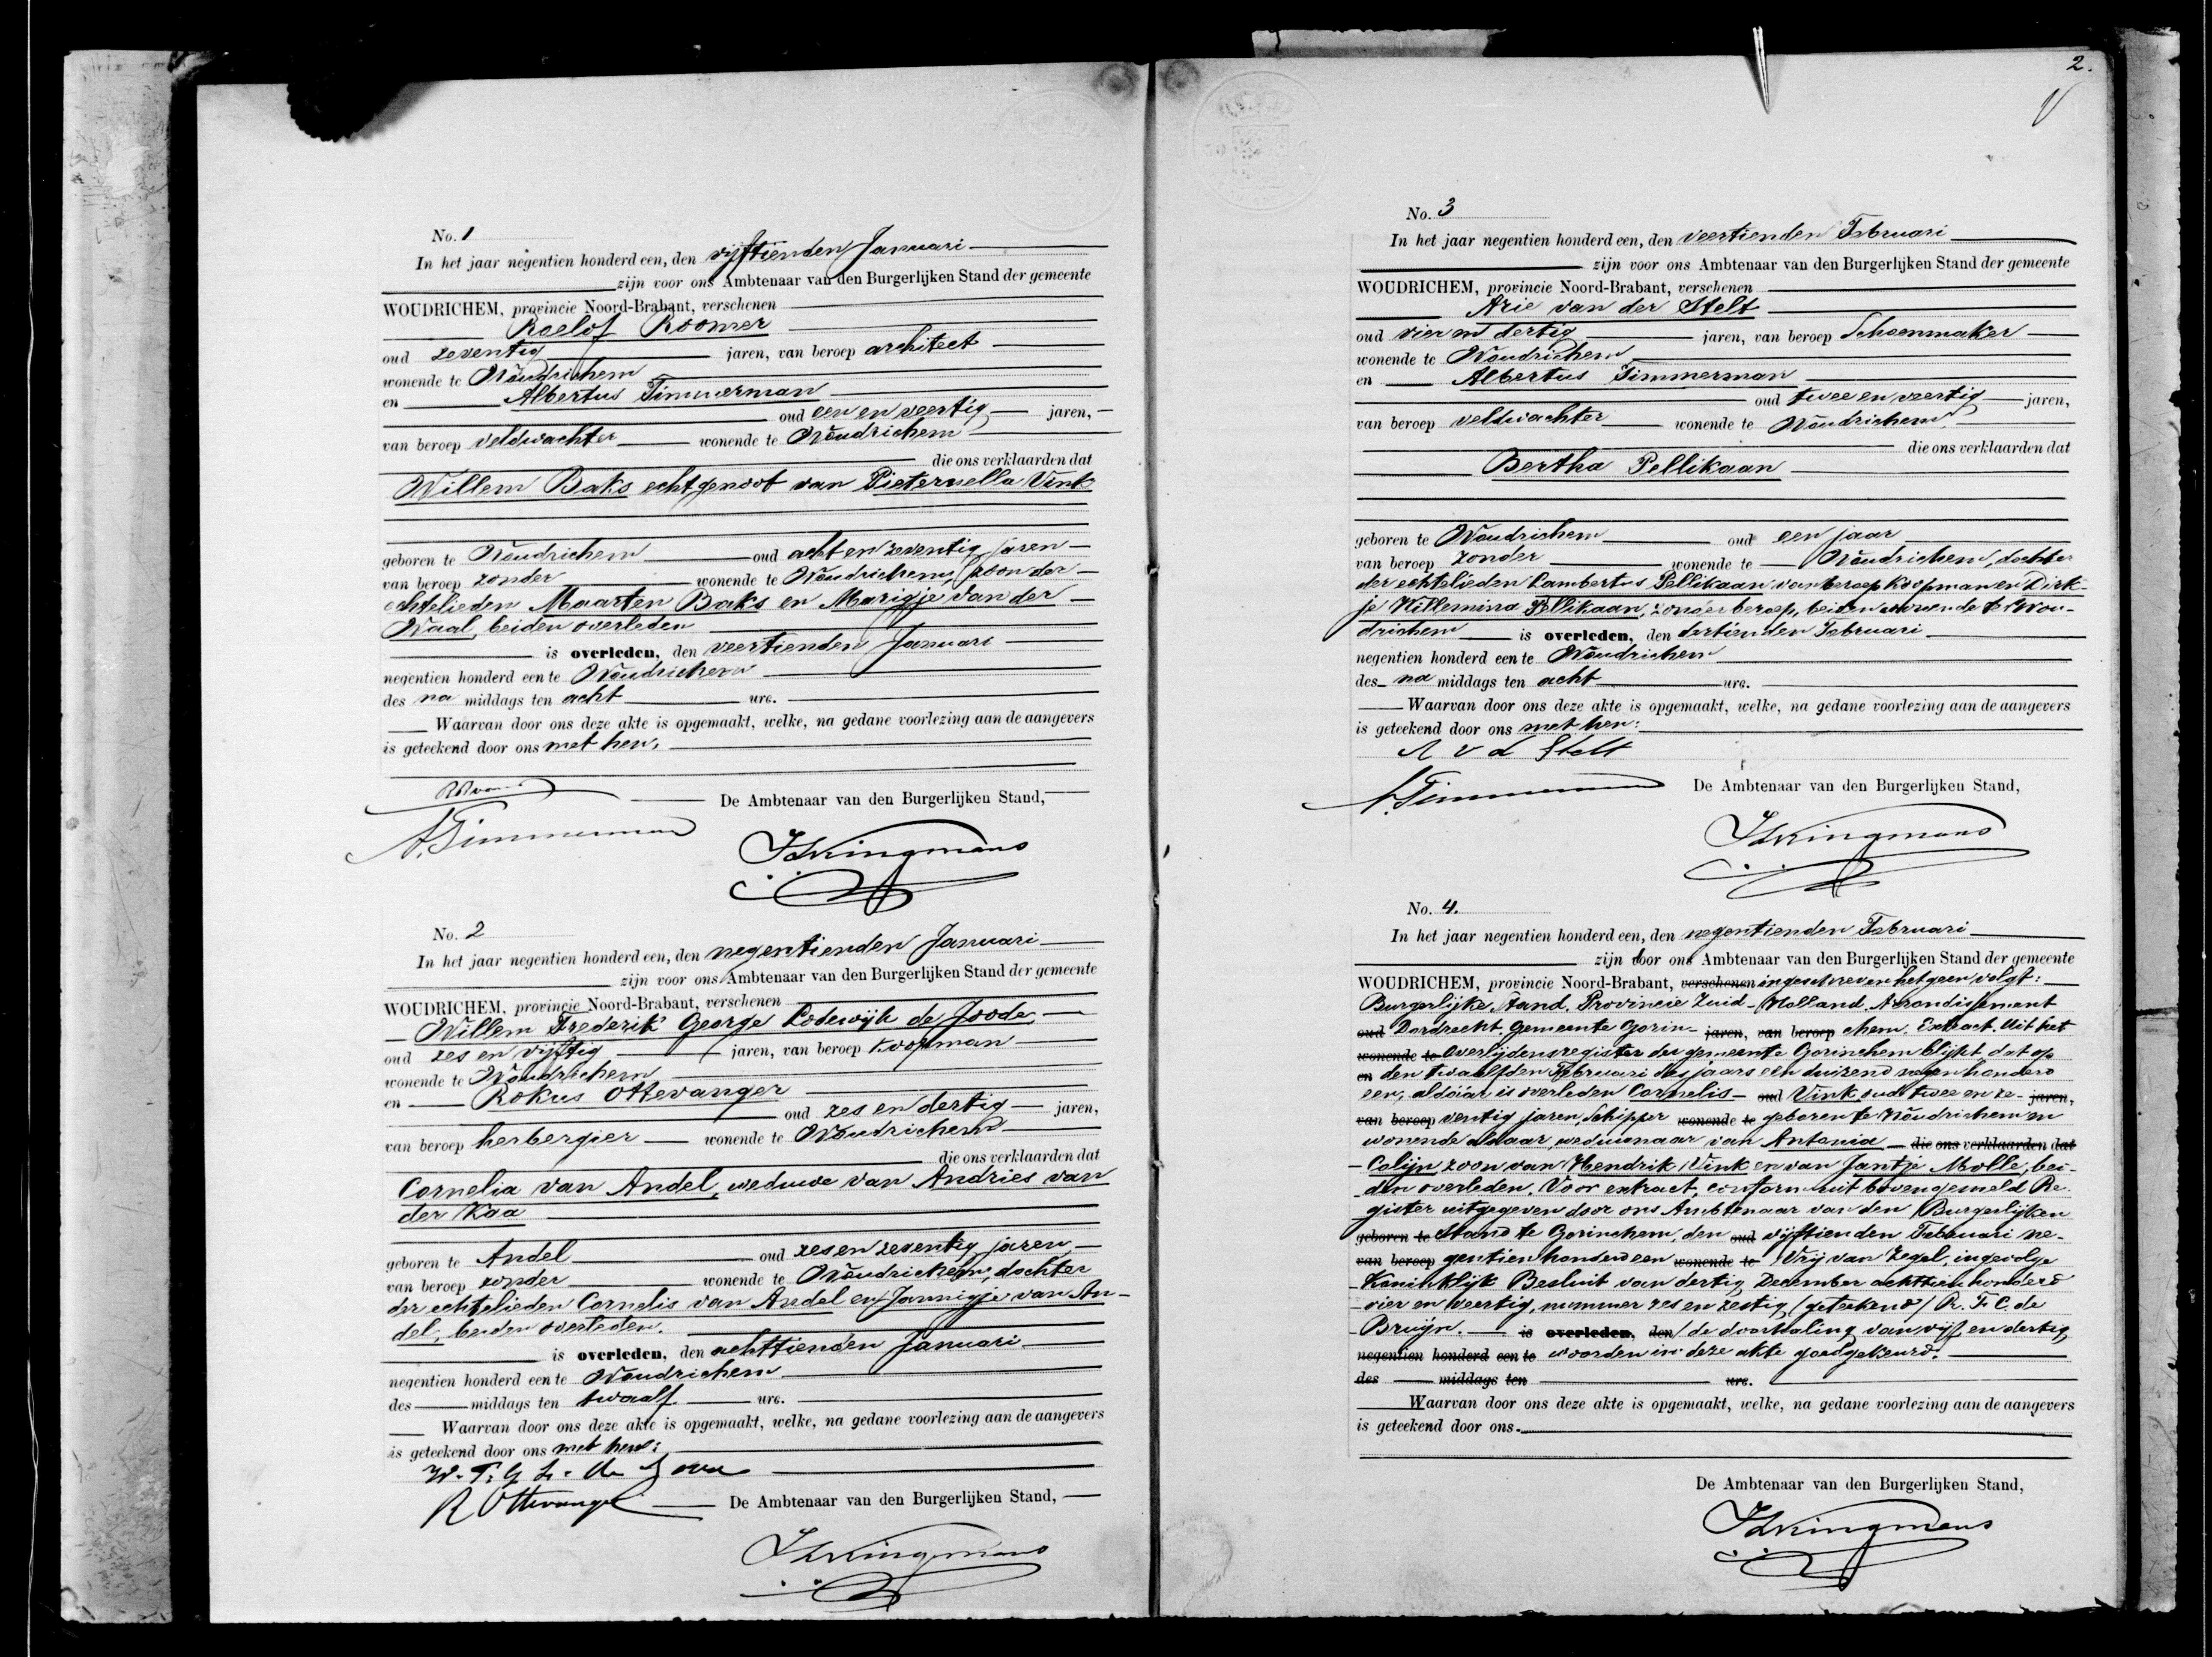 No. 1
In het jaar negentien honderd een, den vijftienden Januari
zijn voor ons Ambtenaar van den Burgerlijken Stand der gemeente
WOUDRICHEM, provincie Noord-Brabant, verschenen
Roelof Roomer
oud zeventig jaren, van beroep architect
wonende te Woudrichem
en Albertus Timmerman
oud een en veertig jaren,
van beroep veldwachter wonende te Woudrichem
die ons verklaarden dat
Willem Baks echtgenoot van Pieternella Vink
geboren te Woudrichem oud acht en zeventig jaren
van beroep zonder wonende te Woudrichem, zoon der
echtelieden Maarten Baks en Marigje van der
Waal, beiden overleden
is overleden, den veertienden Januari
negentien honderd een te Woudrichem
des na middags ten acht ure.
Waarvan door ons deze akte is opgemaakt, welke, na gedane voorlezing aan de aangevers
is geteekend door ons met hen,
A. Timmerman
De Ambtenaar van den Burgerlijken Stand,
No. 2
In het jaar negentien honderd een, den negentienden Januari
zijn voor ons Ambtenaar van den Burgerlijken Stand der gemeente
WOUDRICHEM, provincie Noord-Brabant, verschenen
Willem Frederik George Lodewijk de Joode
oud zes en vijftig jaren, van beroep koopman
wonende te Woudrichem
en Rokus Ottevanger
oud zes en dertig jaren,
van beroep herbergier wonende te Woudrichem
die ons verklaarden dat
Cornelia van Andel, weduwe van Andries van
der Kaa
geboren te Andel oud zes en zeventig jaren
van beroep zonder wonende te Woudrichem, dochter
der echtelieden Cornelis van Andel en Jannigje van An-
del, beiden overleden.
is overleden, den achttienden Januari
negentien honderd een te Woudrichem
des middags ten twaalf ure.
Waarvan door ons deze akte is opgemaakt, welke, na gedane voorlezing aan de aangevers
is geteekend door ons met hen:
R Ottevanger
De Ambtenaar van den Burgerlijken Stand,
2.
No. 3
In het jaar negentien honderd een, den veertienden Februari
zijn voor ons Ambtenaar van den Burgerlijken Stand der gemeente
WOUDRICHEM, provincie Noord-Brabant, verschenen
Arie van der Stelt
oud vier en dertig jaren, van beroep Schoenmaker
wonende te Woudrichem
en Albertus Timmerman
oud twee en veertig jaren,
van beroep veldwachter wonende te Woudrichem
die ons verklaarden dat
Bertha Pellikaan
geboren te Woudrichem oud een jaar
van beroep zonder wonende te Woudrichem, dochter
der echtelieden Lambertus Pellikaan van beroep koopman en Dirk-
je Willemina Pellikaan, zonder beroep, beiden wonende te Wou-
drichem is overleden, den dertienden Februari
negentien honderd een te Woudrichem
des na middags ten acht ure.
Waarvan door ons deze akte is opgemaakt, welke, na gedane voorlezing aan de aangevers
is geteekend door ons met hen:
A v d Stelt
A. Timmerman
De Ambtenaar van den Burgerlijken Stand,
No. 4.
In het jaar negentien honderd een, den negentienden Februari
zijn door ons Ambtenaar van den Burgerlijken Stand der gemeente
WOUDRICHEM, provincie Noord-Brabant, verschenen ingeschreven hetgeen volgt:
Burgerlijke Stand. Provincie Zuid-Holland Arrondissement
oud Dordrecht. Gemeente Gorin- jaren, van beroep chem. Extract. Uit het
wonende te Overlijdensregister der gemeente Gorinchem blijkt dat op
en den twaalfden Februari des jaars een duizend negen honderd
een, aldáár is overleden Cornelis oud Vink, oud twee en ze- jaren,
van beroep ventig jaren, Schipper wonende te geboren te Woudrichem en
wonende aldaar, weduwnaar van Antonia die ons verklaarden dat
Colijn zoon van Hendrik Vink en van Jantje Molle, bei-
den overleden. Voor extract, conform uit bovengemeld Re-
gister uitgegeven door ons Ambtenaar van den Burgerlijken
geboren te Stand te Gorinchem, den oud vijftienden Februari ne-
van beroep gentien honderd een wonende te Vrij van Zegel, ingevolge
Koninklijk Besluit van dertig December achttien honderd
vier en veertig, nummer zes en zestig (geteekend) R. F. C. de
Bruijn. is overleden, den de doorhaling van vijf en dertig
negentien honderd een te woorden in deze akte goedgekeurd.
des middags ten ure.
Waarvan door ons deze akte is opgemaakt, welke, na gedane voorlezing aan de aangevers
is geteekend door ons.
De Ambtenaar van den Burgerlijken Stand,